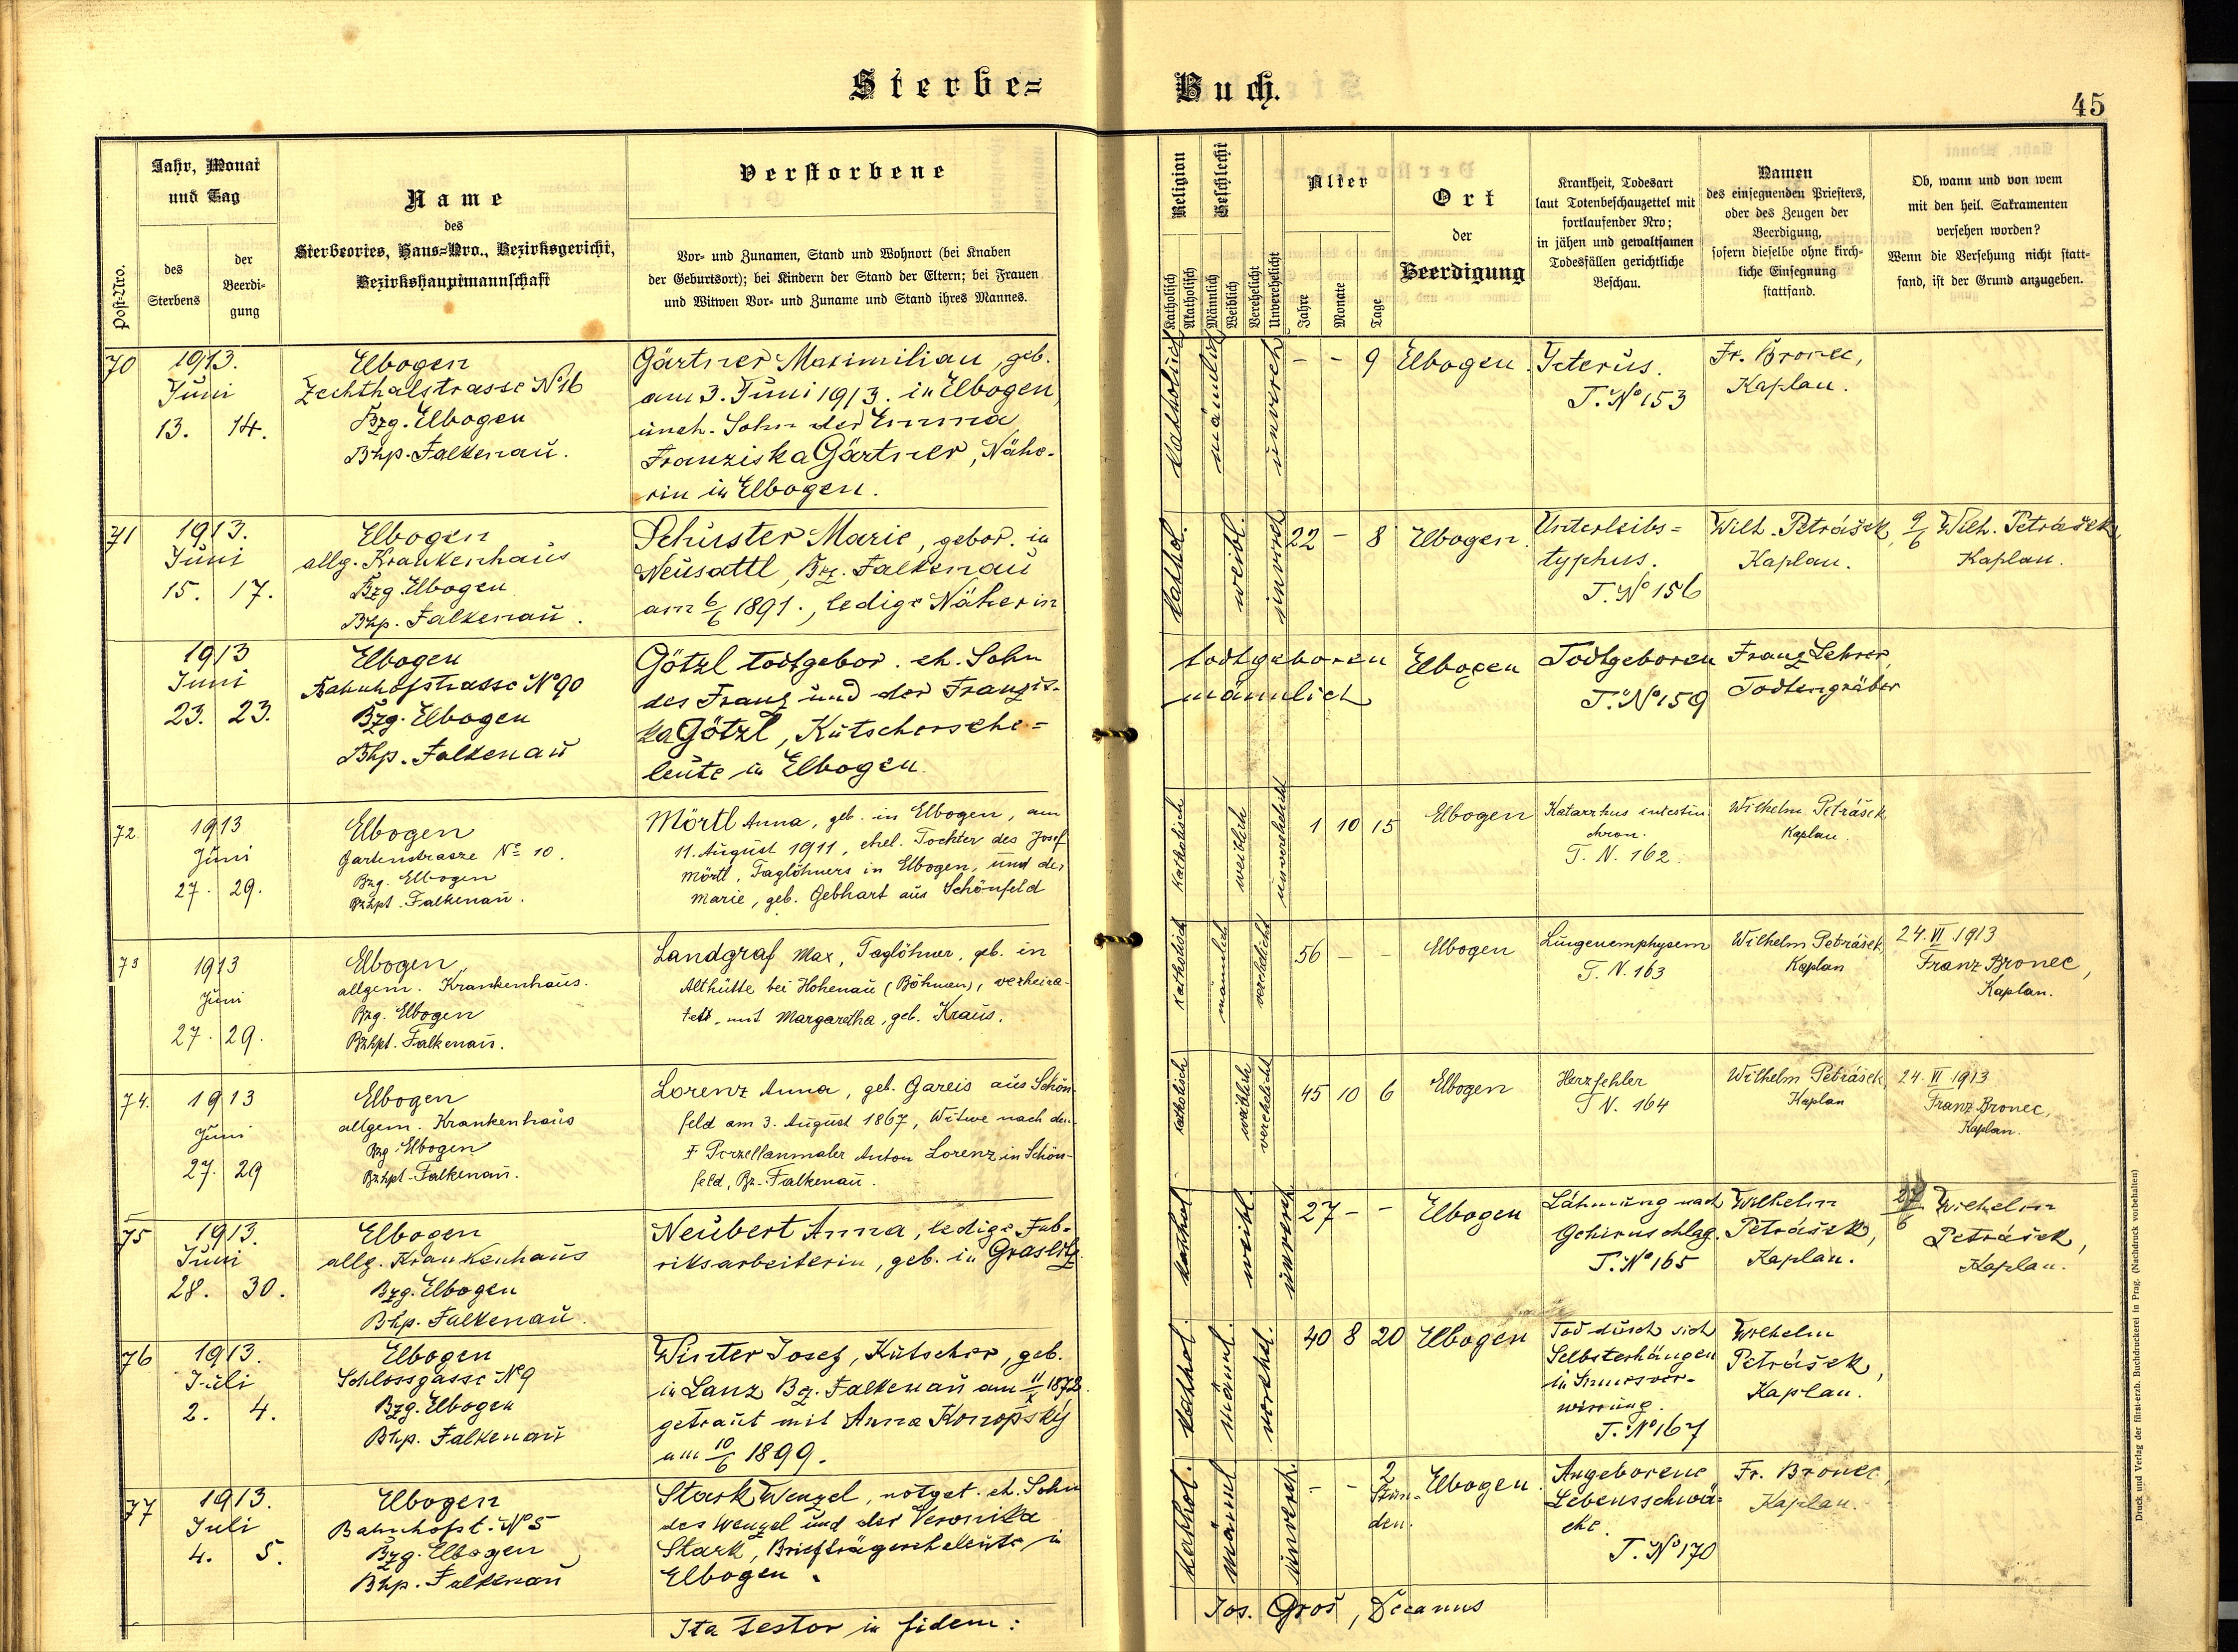 Sterbe=
Buch.
45
Post-Nro.
Jahr, Monat
und Tag
des
Sterbens
der
Beerdi-
gung
Name
des
Sterbeortes, Haus-Nro., Bezirksgericht,
Bezirkshauptmannschaft
Verstorbene
Vor- und Zunamen, Stand und Wohnort (bei Knaben
der Geburtsort); bei Kindern der Stand der Eltern; bei Frauen
und Witwen Vor- und Zuname und Stand ihres Mannes.
Religion
Katholisch
Akatholisch
Geschlecht
Männlich
Weiblich
Verehelicht
Unverehelicht
Alter
Jahre
Monate
Tage
Ort
der
Beerdigung
Krankheit, Todesart
laut Totenbeschauzettel mit
fortlaufender Nro;
in jähen und gewaltsamen
Todesfällen gerichtliche
Beschau.
Namen
des einsegnenden Priesters,
oder des Zeugen der
Beerdigung,
sofern dieselbe ohne kirch-
liche Einsegnung
stattfand.
Ob, wann und von wem
mit den heil. Sakramenten
versehen worden?
Wenn die Versehung nicht statt-
fand, ist der Grund anzugeben.
70
1913.
Juni
13. 14.
Elbogen
Zechthalstrasse No 16
Bzg. Elbogen
Bhp. Falkenau.
Gärtner Maximilian, geb.
am 3. Juni 1913. in Elbogen,
uneh. Sohn der Emma
Franziska Gärtner, Nähe-
rin in Elbogen.
katholisch
männlich
unvereh
- - 9
Elbogen.
Icterus.
T. No 153
Fr. Bronec,
Kaplan.
71
1913.
Juni
15. 17.
Elbogen
allg. Krankenhaus
Bzg. Elbogen
Bhp. Falkenau.
Schuster Marie, gebor. in
Neusattl, Bz. Falkenau
am 6/6 1891., ledige Näherin
kathol.
weibl.
unvereh
22 - 8
Elbogen.
Unterleibs=
typhus.
T. No 156
Wilh. Petrášek,
Kaplan.
9/6 Wilh. Petrášek,
Kaplan.
1913
Juni
23. 23.
Elbogen
Bahnhofstrasse No 90
Bzg. Elbogen
Bhp. Falkenau
Götzl todtgebor. eh. Sohn
des Franz und der Franzis-
ka Götzl, Kutschersehe=
leute in Elbogen.
todtgeboren
männlich
Elbogen
Todtgeboren
T. No 159
Franz Lehrer,
Todtengräber
72
1913
Juni
27. 29.
Elbogen
Gartenstrasse No 10.
Bzg. Elbogen
Bzhpt. Falkenau.
Mörtl Anna, geb. in Elbogen, am
11. August 1911, ehel. Tochter des Josef
Mörtl, Taglöhners in Elbogen, und der
Marie, geb. Gebhart aus Schönfeld
Katholisch
weiblich
unverehelicht
1 10 15
Elbogen
Katarrhus intestin.
chron.
T. N. 162.
Wilhelm Petrášek,
Kaplan.
73
1913
Juni
27. 29.
Elbogen
allgem. Krankenhaus.
Bzg. Elbogen
Bzhpt. Falkenau.
Landgraf Max, Taglöhner, geb. in
Althütte bei Hohenau (Böhmen), verheira-
tet, mit Margaretha, geb. Kraus.
Katholisch
männlich
verehelicht
56 - -
Elbogen
Lungenemphysem
T. N. 163
Wilhelm Petrášek,
Kaplan
24. VI. 1913
Franz Bronec,
Kaplan.
74.
1913
Juni
27. 29
Elbogen
allgem. Krankenhaus
Bzg. Elbogen
Bzhpt. Falkenau.
Lorenz Anna, geb. Gareis aus Schön-
feld am 3. August 1867, Witwe nach dem
† Porzellanmaler Anton Lorenz in Schön-
feld, Bz. Falkenau.
katholisch
weiblich
verehelicht
45 10 6
Elbogen
Herzfehler
T N. 164
Wilhelm Petrášek,
Kaplan
24. VI 1913
Franz Bronec,
Kaplan.
75
1913.
Juni
28. 30.
Elbogen
allg. Krankenhaus
Bzg. Elbogen
Bhp. Falkenau.
Neubert Anna, ledige Fab-
riksarbeiterin, geb. in Graslitz.
kathol
weibl.
unvereh
27 - -
Elbogen
Lähmung nach
Gehirnschlag.
T. No 165
Wilhelm
Petrášek,
Kaplan.
27/6 Wilhelm
Petrášek,
Kaplan.
76
1913.
Juli
2. 4.
Elbogen
Schlossgasse No 9
Bzg. Elbogen
Bhp. Falkenau
Winter Josef, Kutscher, geb.
in Lanz Bz. Falkenau am 11/X 1872.
getraut mit Anna Konopský
am 10/6 1899.
kathol.
männl.
verehel.
40 8 20
Elbogen
Tod durch sich
Selbsterhängen
in Sinnesver-
wirrung.
T. No 167
Wilhelm
Petrášek,
Kaplan.
77
1913.
Juli
4. 5.
Elbogen
Bahnhofst. No 5
Bzg. Elbogen
Bhp. Falkenau
Stark Wenzel, notget. eh. Sohn
des Wenzel und der Veronika
Stark, Briefträgerseheleute in
Elbogen.
kathol.
männl
unvereh.
- - 2
Stun-
den.
Elbogen.
Angeborene
Lebensschwä-
che.
T. No 170
Fr. Bronec,
Kaplan.
Ita testor in fidem:
Jos. Groš, Decanus
Druck und Verlag der fürst-erzb. Buchdruckerei in Prag. (Nachdruck vorbehalten)